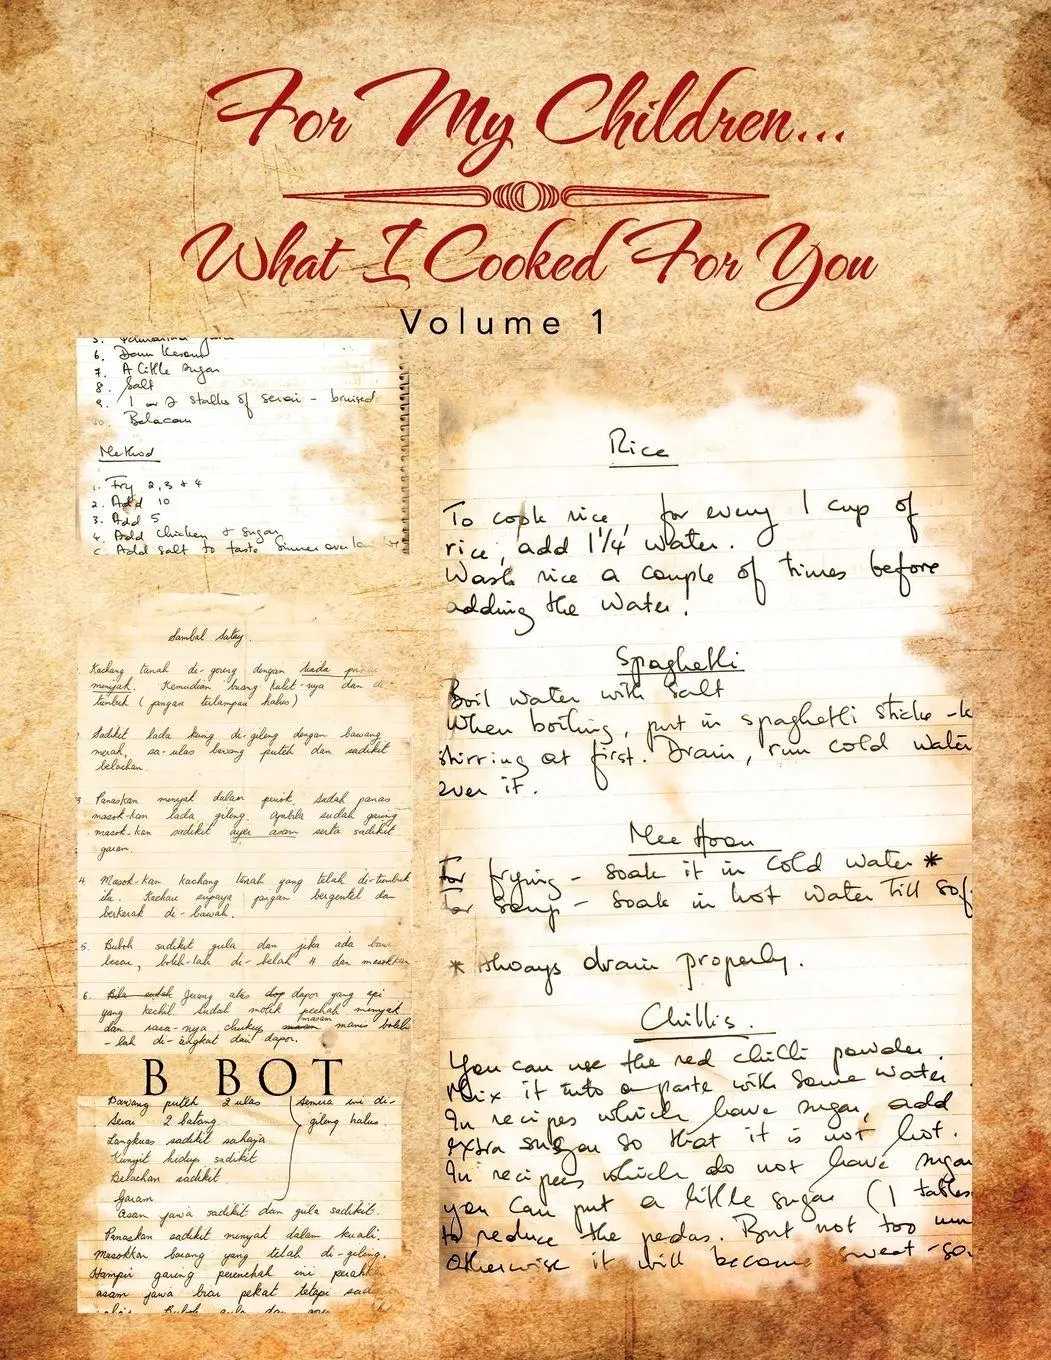 For My Children...
What I Cooked For You
Volume 1
6. Daun Kesom
7. A little sugar
8. Salt
9. 1 or 2 stalks of serai - bruised
10. Belacan
Method
1. Fry 2, 3 + 4
2. Add 10
3. Add 5
4. Add chicken & sugar
Add salt to taste Simmer over low
Sambal Satay.
Kachang tanah di-goreng dengan tiada
minyak. Kemudian buang kulit-nya dan di-
tumbok (jangan terlampau halus)
Sadikit lada kring di-gileng dengan bawang
merah, sa-ulas bawang puteh dan sadikit
belachan.
3 Panaskan minyak dalam priok. Sudah panas
masok-kan lada gileng. Apabila sudah garing
masok-kan sadikit ayer asam serta sadikit
garam.
4 Masok-kan kachang tanah yang telah di-tumbok
itu. Kachau supaya jangan bergentel dan
berkerak di-bawah.
5. Buboh sadikit gula dan jika ada
besar, boleh-lah di-belah 4 dan masokkan
6. Bila sudah Jerang atas dap dapor yang api
yang kechil. Sudah molek pechah minyak
dan rasa-nya chukup masam manis boleh
-lah di-angkat dari dapor.
B BOT
Bawang puteh 2 ulas
Serai 2 batang
Langkuas sadikit sahaja
Kunyit hidup sadikit
Belachan sadikit.
Garam
Semua ini di-
gileng halus.
Asam jawa sadikit dan gula sadikit.
Panaskan sadikit minyak dalam kuali.
Masokkan barang yang telah di-gileng.
Hampir garing perenchah ini perahkan
asam jawa biar pekat tetapi
Buboh gula dan
Rice
To cook rice, for every 1 cup of
rice, add 1 1/4 water.
Wash rice a couple of times before
adding the water.
Spaghetti
Boil water with salt
When boiling, put in spaghetti sticks -
stirring at first. Drain, run cold water
over it.
Mee Hoon
For frying - soak it in cold water *
For soup - soak in hot water till
* Always drain properly.
Chillis.
You can use the red chilli powder.
Mix it into a paste with some water
In recipes which have sugar, add
extra sugar so that it is not hot.
In recipes which do not have sugar
you can put a little sugar (1
to reduce the pedas. But not too
otherwise it will become sweet